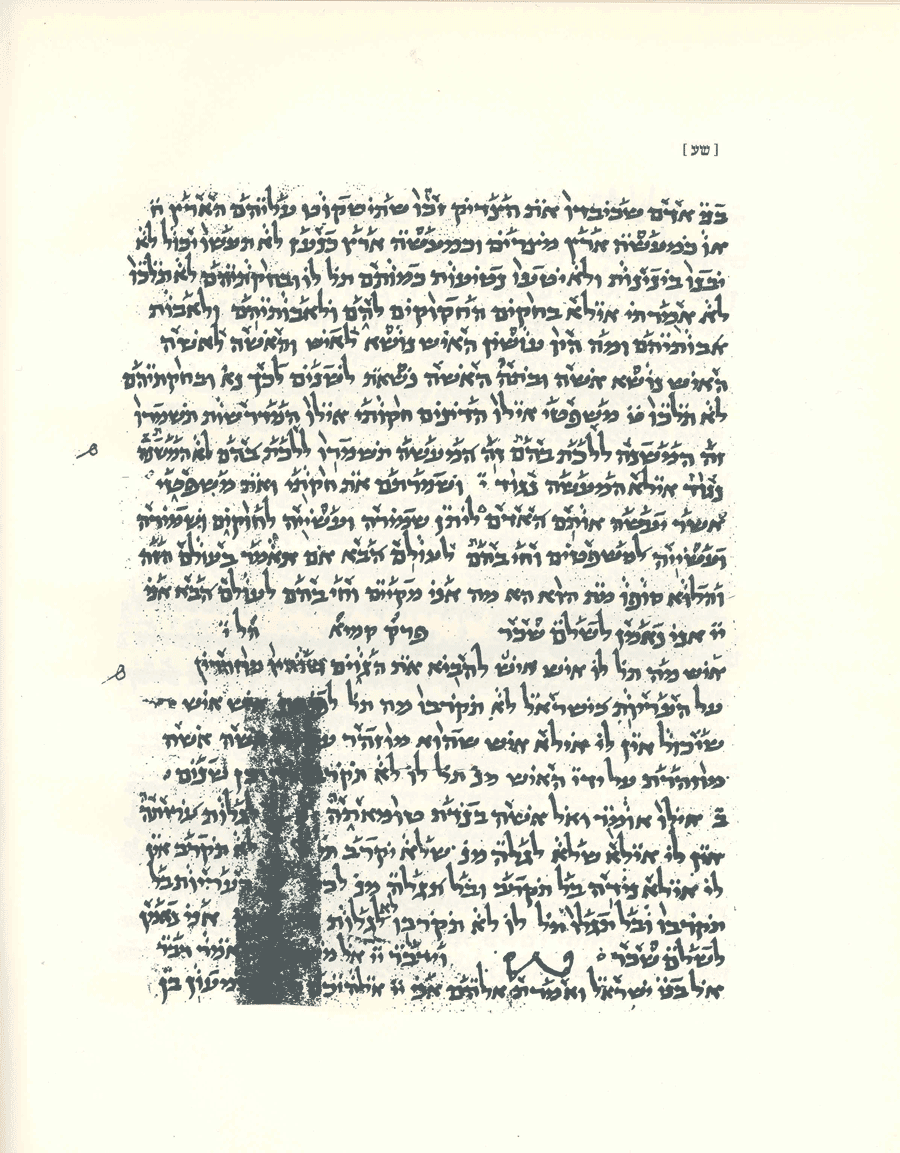 [ שע ]
בני אדם שכיבדו את הצדיק זכו שתישקוט עליהם הארץ ח
או כמעשה ארץ מיצרים וכמעשה ארץ כנען לא תעשו יכול לא
יבנו ביניינות ולא יטעו נטיעות כמותם תל לו ובחקותיהם לא תלכו
לא אמרתי אילא בחקים החקוקים להם ולאבותיהם ולאבות
אבותיהם ומה היו עושין האיש נושא לאיש והאשה לאשה
האיש נושא אשה ובתה האשה נשאת לשנים לכך נא ובחקתיהם
לא תלכו ט משפטי אילו הדינים חקותי אילו המדרשות תשמרו
זה המשנה ללכת בהם זה המעשה תשמרו ללכת בהם לא המשנה
אילא המעשה י ושמרתם את חקותי ואת משפטי
אשר יעשה אותם האדם ליתן שמירה ועשייה לחוקים ושמירה
ועשייה למשפטים וחי בהם לעולם הבא אם תאמר בעולם הזה
והלוא סופו מת הוא הא מה אני מקיים וחי בהם לעולם הבא אני
יי אני נאמן לשלם שכר פרק קמיא הל י
איש מה תל לו איש איש להביא את הגוים מוזהרין
על העריות כישראל לא תקרבו מה תל איש
שיכול אין לו אילא איש שהוא מוזהיר אשה
מוזהרת על ידי האיש מנ תל לו לא שנים
ב אילו אומר ואל אשה בנדת טומאתה לגלות ערותה
אין לו אילא שלא לגלה מנ שלא יקרב לא תקרב אין
לו אילא נידה בל תקרב ובל תגלה מנ העריות בל
תיקרבו ובל תגלו תל לו לא תקרבו לגלות אני נאמן
לשלם שכר וידבר יי אל דבר
אל בני ישראל ואמרת אלהם אני יי שמעון בן